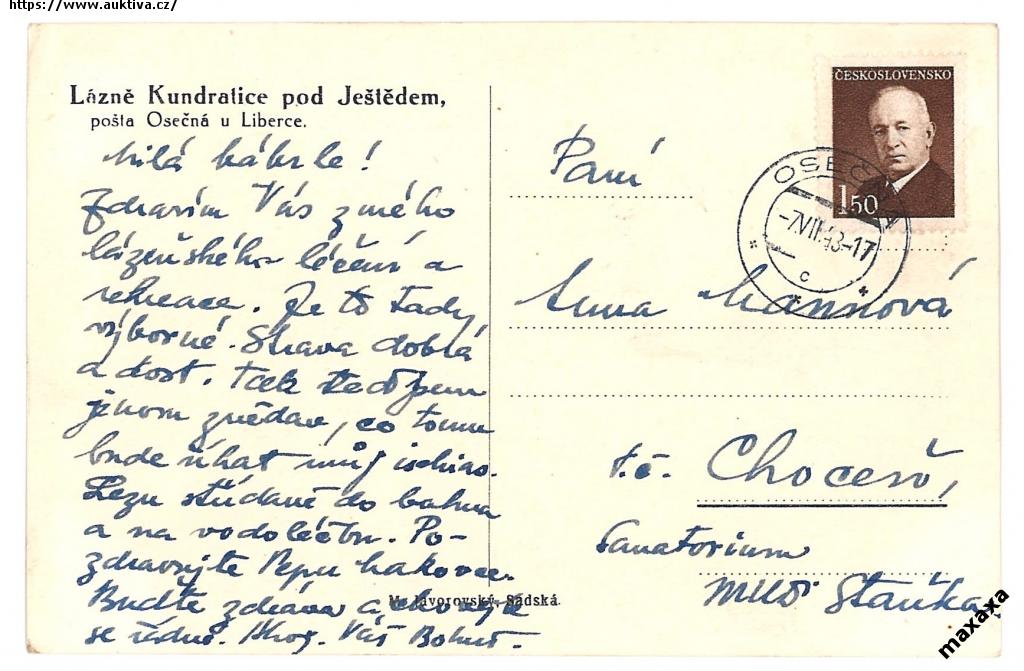 https://www.auktiva.cz/
Lázně Kundratice pod Ještědem,
pošta Osečná u Liberce.
Milá
Zdravím Vás z mého
lázeňského léčení a
rekreace. Je to tady
výborné. Strava dobrá
a dost. Tak teď jsem
jenom zvědav, co tomu
bude říkat můj ischias.
Lezu střídavě do bahna
a na vodoléčbu. Po-
zdravujte Pepu
Buďte zdráva a chovejte
se řádně. Váš
M. Javorovský, Sadská.
ČESKOSLOVENSKO
1.50
OSEČNÁ
-7.VII.48-17
c
Paní
Anna Mannová
t.č. Choceň,
Sanatorium
MUDr Staňka
maxaxa